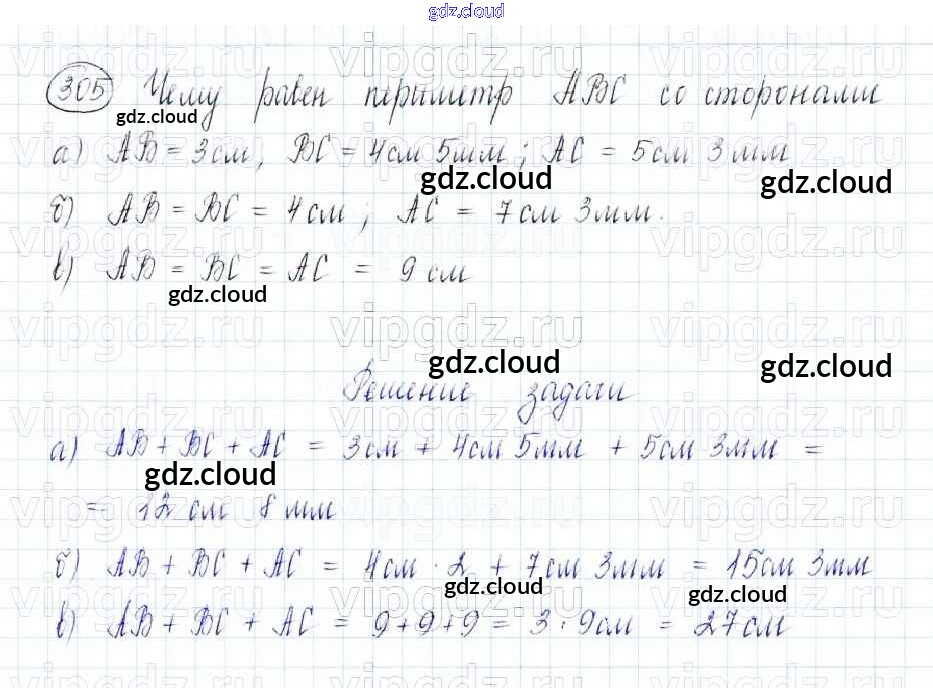 gdz.cloud
305 Чему равен периметр ABC со сторонами
gdz.cloud
а) AB = 3 см, BC = 4 см 5 мм; AC = 5 см 3 мм
gdz.cloud gdz.cloud
б) AB = BC = 4 см; AC = 7 см 3 мм.
в) AB = BC = AC = 9 см
gdz.cloud
vipgdz.ru vipgdz.ru vipgdz.ru
gdz.cloud gdz.cloud
Решение задачи
а) AB + BC + AC = 3 см + 4 см 5 мм + 5 см 3 мм =
gdz.cloud
= 12 см 8 мм
б) AB + BC + AC = 4 см · 2 + 7 см 3 мм = 15 см 3 мм
gdz.cloud gdz.cloud
в) AB + BC + AC = 9 + 9 + 9 = 3 · 9 см = 27 см